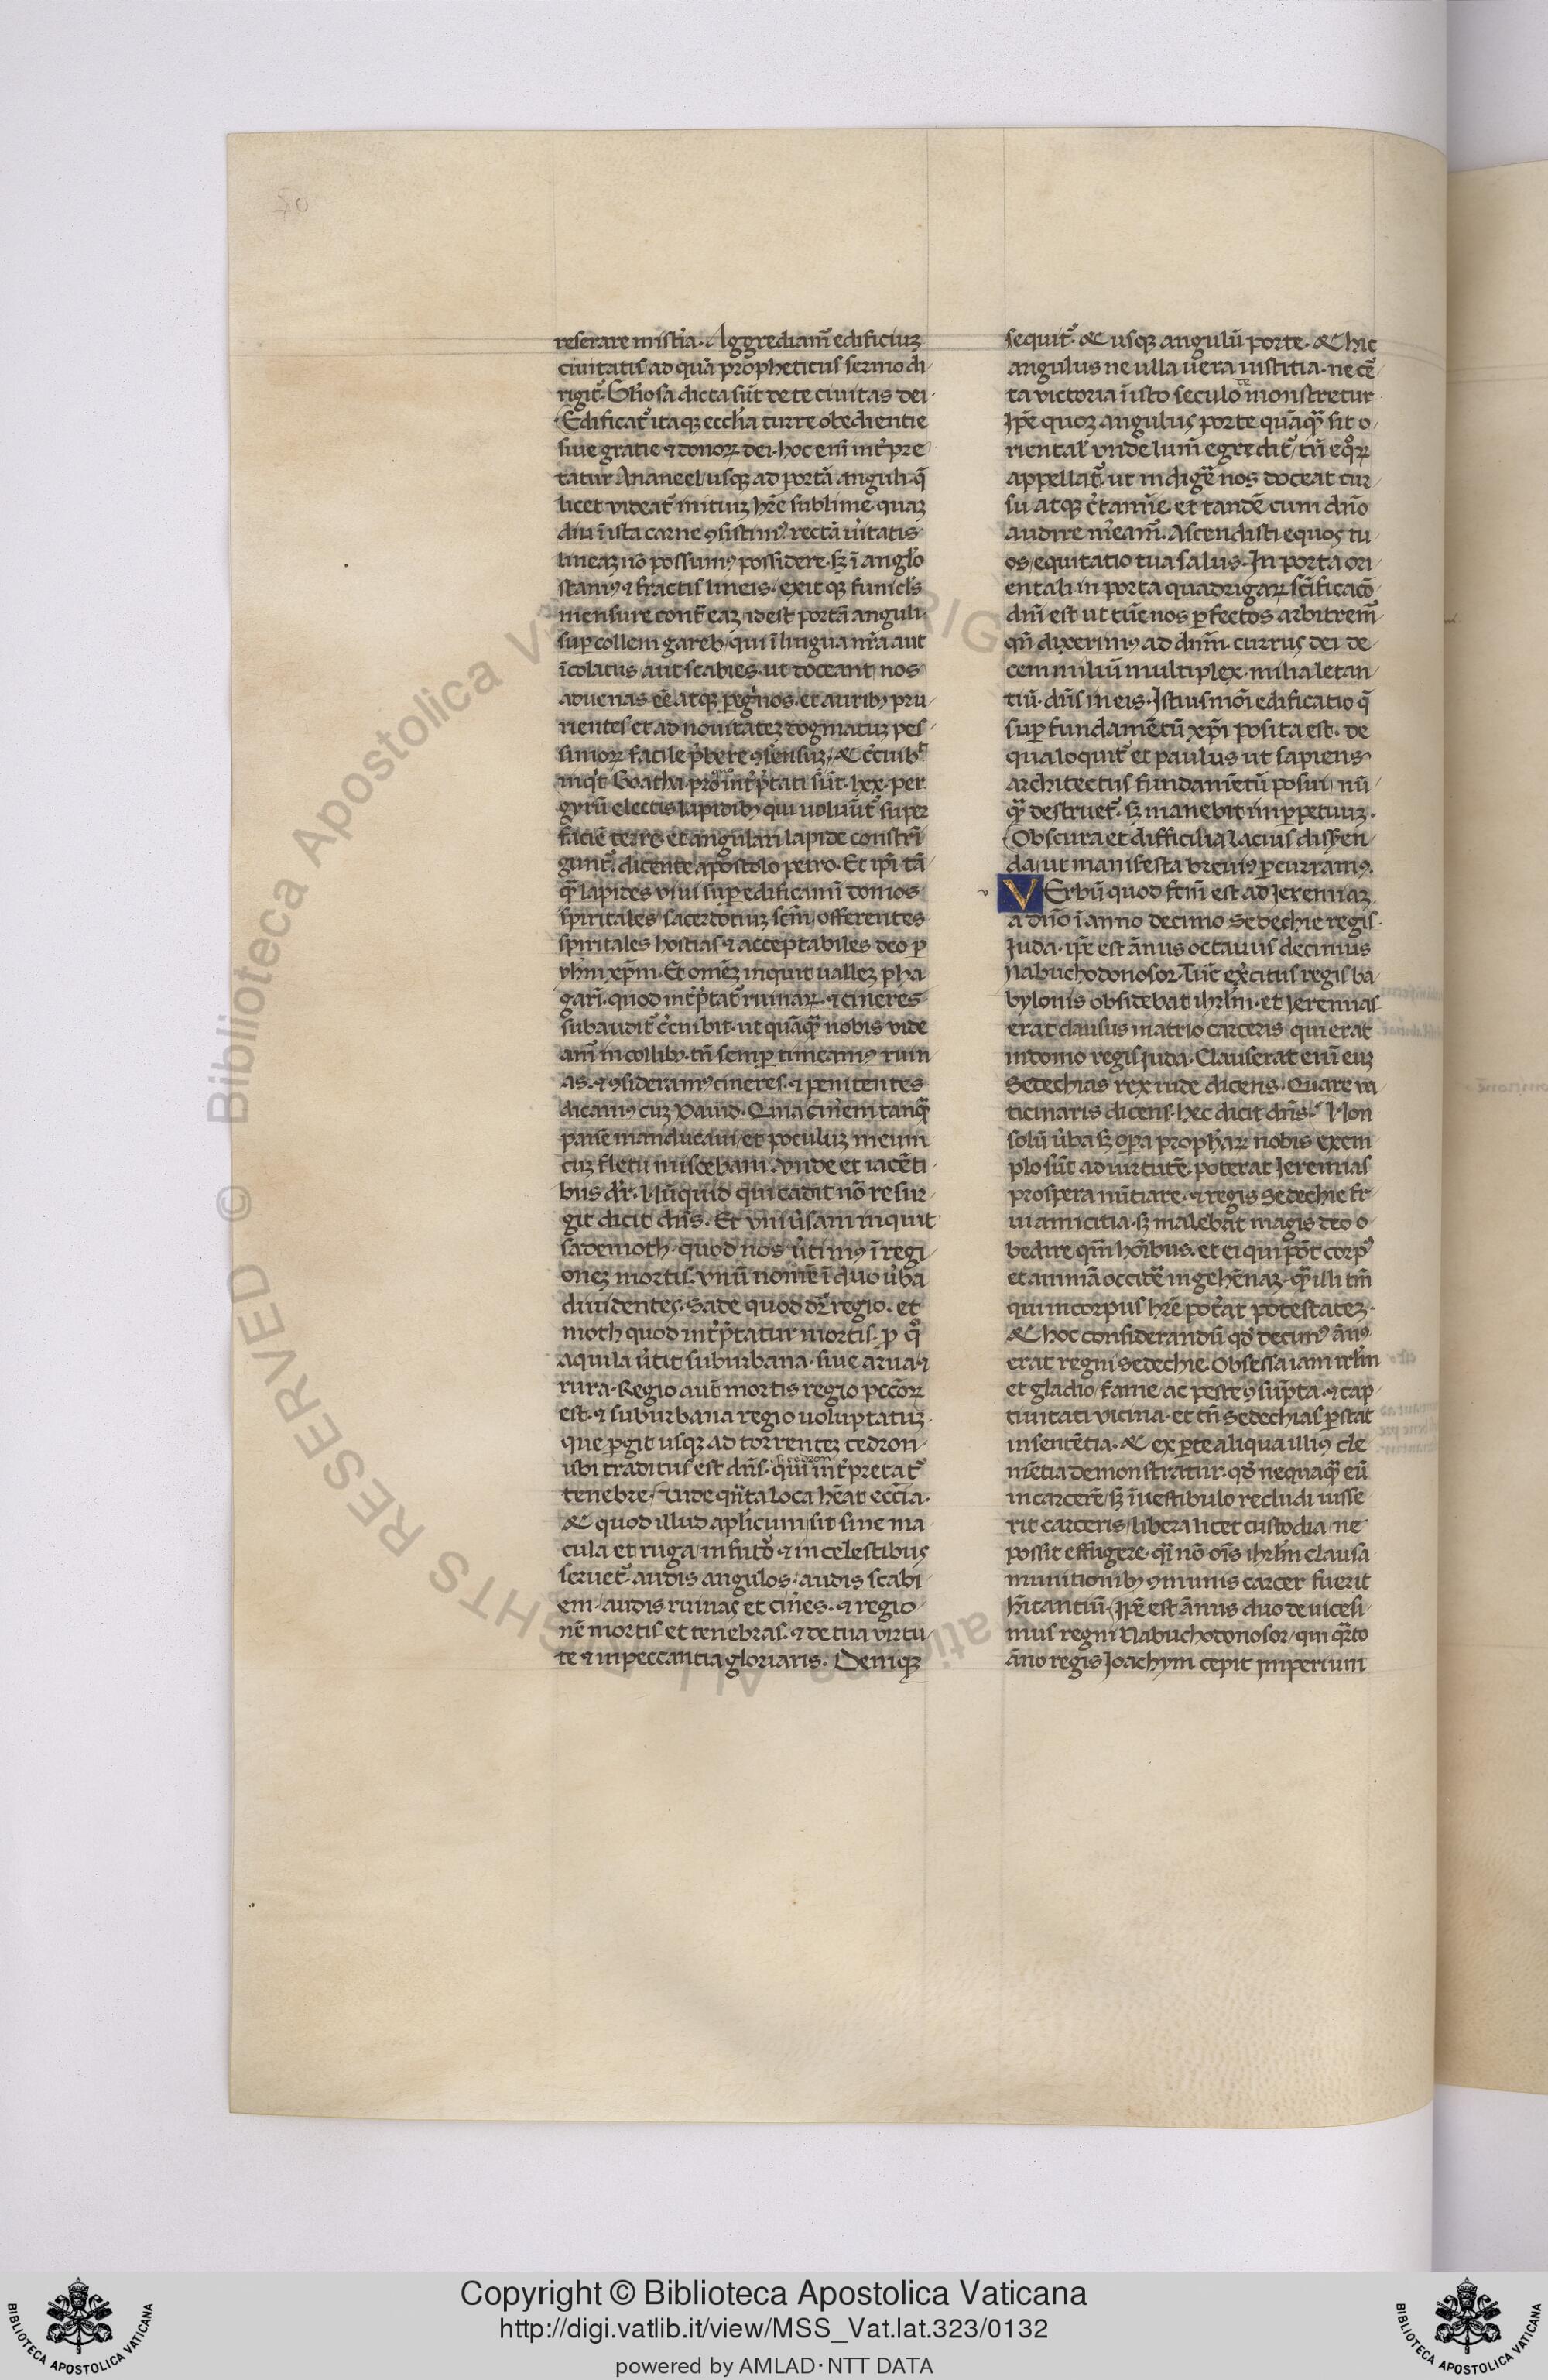 reserare mist̓ia. Aggrediam᷑ edificiuꝫ
ciuitatis ad quā propheticus sermo di
rigit᷑. Gl̓iosa dicta sūt de te ciuitas dei.
Edificat᷑ itaqꝫ eccl̓ia turre obedientie
siue gratie ⁊ donoꝝ dei. hoc eni᷑ int̓pre
tatur Ananeel usqꝫ ad portā anguli. q̄
licet videat᷑ initiuꝫ hr̄e sublime. quaꝫ
diu ī ista carne ꝯsistimꝰ. rectā ūitatis
lineaꝫ nō possumꝰ possidere. sꝫ ī anglo
stamꝰ ⁊ fractis lineis. exit qꝫ funicl̓s
mensure cont̓ eaꝫ idest portā anguli.
suꝑ collem gareb, qui ī lingua nr̄a aut
īcolatus aut scabies. ut doceant nos
aduenas eē atqꝫ ꝑegͥnos. et auribꝰ pru
rientes et ad nouitateꝫ dogmatuꝫ pes
simoꝝ facile p̄bere ꝯsensuꝫ, & c̓cuibᵗ
inqͥt Goatha. pro q° int̓p̄tati sūt. lxx. per
gyrū electis lapidibꝰ qui uoluūt᷑ super
faciē terre et angulari lapide constrī
gunt᷑. dicente apostolo petro. Et ip̄i tā
qᷓ lapides viui suꝑedificamī domos
spiritales sacerdotiuꝫ scm̄, offerentes
spiritales hostias ⁊ acceptabiles deo ꝑ
yhm̄ xp̄m. Et omēꝫ inquit ualleꝫ pha
garī. quod int̓p̄tat᷑ ruinaꝝ. ⁊ cineres
subaudit᷑ c̓cuibit. ut quāqᷓ nobis vide
am᷑ in collibꝰ. tn̄ semꝑ timeamꝰ ruin
as. ⁊ ꝯsideramꝰ cineres. ⁊ penitentes
dicamꝰ cuꝫ Dauid. Quia cin̓em tanqᷓ
panē manducaui, et poculuꝫ meum
cuꝫ fletu miscebam. vnde et iacēti
bus dr̄. Nūquid qui cadit nō resur
git dicit dn̄s. Et vniu̓sam inquit
sademoth. quod nos u̓timꝰ ī regi
oneꝫ mortis. vnū nomē ī duo u̓ba
diuidentes. Sade quod dr̄ regio. et
moth quod int̓p̄tatur mortis. ꝑ q°
aquila u̓tit suburbana. siue arua ⁊
rura. Regio aut̄ mortis regio pcc̄oꝝ
est. ⁊ suburbana regio uoluptatuꝫ.
que ꝑgit usqꝫ ad torrenteꝫ cedron.
ubi traditus est dn̄s. qui int̓pretat᷑
tenebre. Vide qn̄ta loca hēat ecc̄ia.
& quod illud apl̓icum, sit sine ma
cula et ruga, in futo᷑ ⁊ in celestibus
seruet᷑. audis angulos. audis scabi
em, audis ruinas et cin̓es. ⁊ regio
nē mortis et tenebras. ⁊ de tua virtu
te ⁊ inpeccantia gloriaris. Deniqꝫ
sequit᷑. & usqꝫ angulū porte. & hic
angulus ne ulla uera iustitia. nec c̄
ta victoria ī isto seculo monstretur
Ip̄e quoꝫ angulus porte quāqᷓ sit o
riental̓ vnde lum̄ egredit᷑, tn̄ eqͦꝝ
appellat᷑. ut indige᷑ nos doceat cur
su atqꝫ c̓tamīe. et tandē cum dn̄o
audire m̓eam᷑. Ascendisti equos tu
os, equitatio tua salus. In porta ori
entali in porta quadrigaꝝ sc̄ificacō
dn̄i est ut tūc nos ꝑfectos arbitrem᷑
qn̄ dixerimꝰ ad dn̄m. currus dei de
cem miliū multiplex. milia letan
tiū. dn̄s in eis. Istiusmōi edificatio q̄
suꝑ fundamētū xp̄i posita est. de
qua loquit᷑ et paulus ut sapiens
architectus fundamētū posui nū
qᷓ destruet᷑. sꝫ manebit in ꝑpetuuꝫ.
Obscura et difficilia lacius disseren
da, ut manifesta breuiꝰ ꝑcurramꝰ.
VErbū quod fcm̄ est ad Jeremiaꝫ
a dn̄o ī anno decimo Sedechie regis.
Juda. ip̄e est ānus octauus decimus
Nabuchodonosor. Tūc ex̓citus regis ba
bylonis obsidebat ihrl̄m. et Jeremias
erat clausus in atrio carceris qui erat
in domo regis Juda. Clauserat eni᷑ euꝫ
Sedechias rex iude dicens. Quare va
ticinaris dicens. hec dicit dn̄s. Non
solū u̓ba sꝫ oꝑa prophaꝝ nobis exem
plo sūt ad uirtutē. poterat Jeremias
prospera nūtiare. ⁊ regis Sedechie fr
ui amicitia. sꝫ malebat magis deo o
bedire qm̄ hoībus. et ei qui pōt corpꝰ
et animā occide᷑ in gehēnaꝫ. qᷓ illi tm̄
qui in corpus hr̄e pot̓at potestateꝫ.
& hoc considerandū qd̓ decimꝰ ānꝰ
erat regni Sedechie. Obsessa iam irl̄m
et gladio, fame ac peste ꝯsūpta. ⁊ cap
tiuitati vicina. et tn̄ Sedechias ꝑstat
in sentētia. & ex ꝑte aliqua illiꝰ cle
mētia demonstratur. qd̓ nequaqᷓ eū
in carcerē, sꝫ ī uestibulo recludi iusse
rit carceris, libera licet custodia, ne
possit effugere. qͣi nō oīs ihrl̄m clausa
munitionibꝰ ꝯmunis carcer fuerit
hītantiū. Ip̄e est ānus duodeuicesi
mus regni Nabuchodonosor, qui qͣrto
āno regis Joachym cepit imperium
Copyright © Biblioteca Apostolica Vaticana
http://digi.vatlib.it/view/MSS_Vat.lat.323/0132
powered by AMLAD·NTT DATA